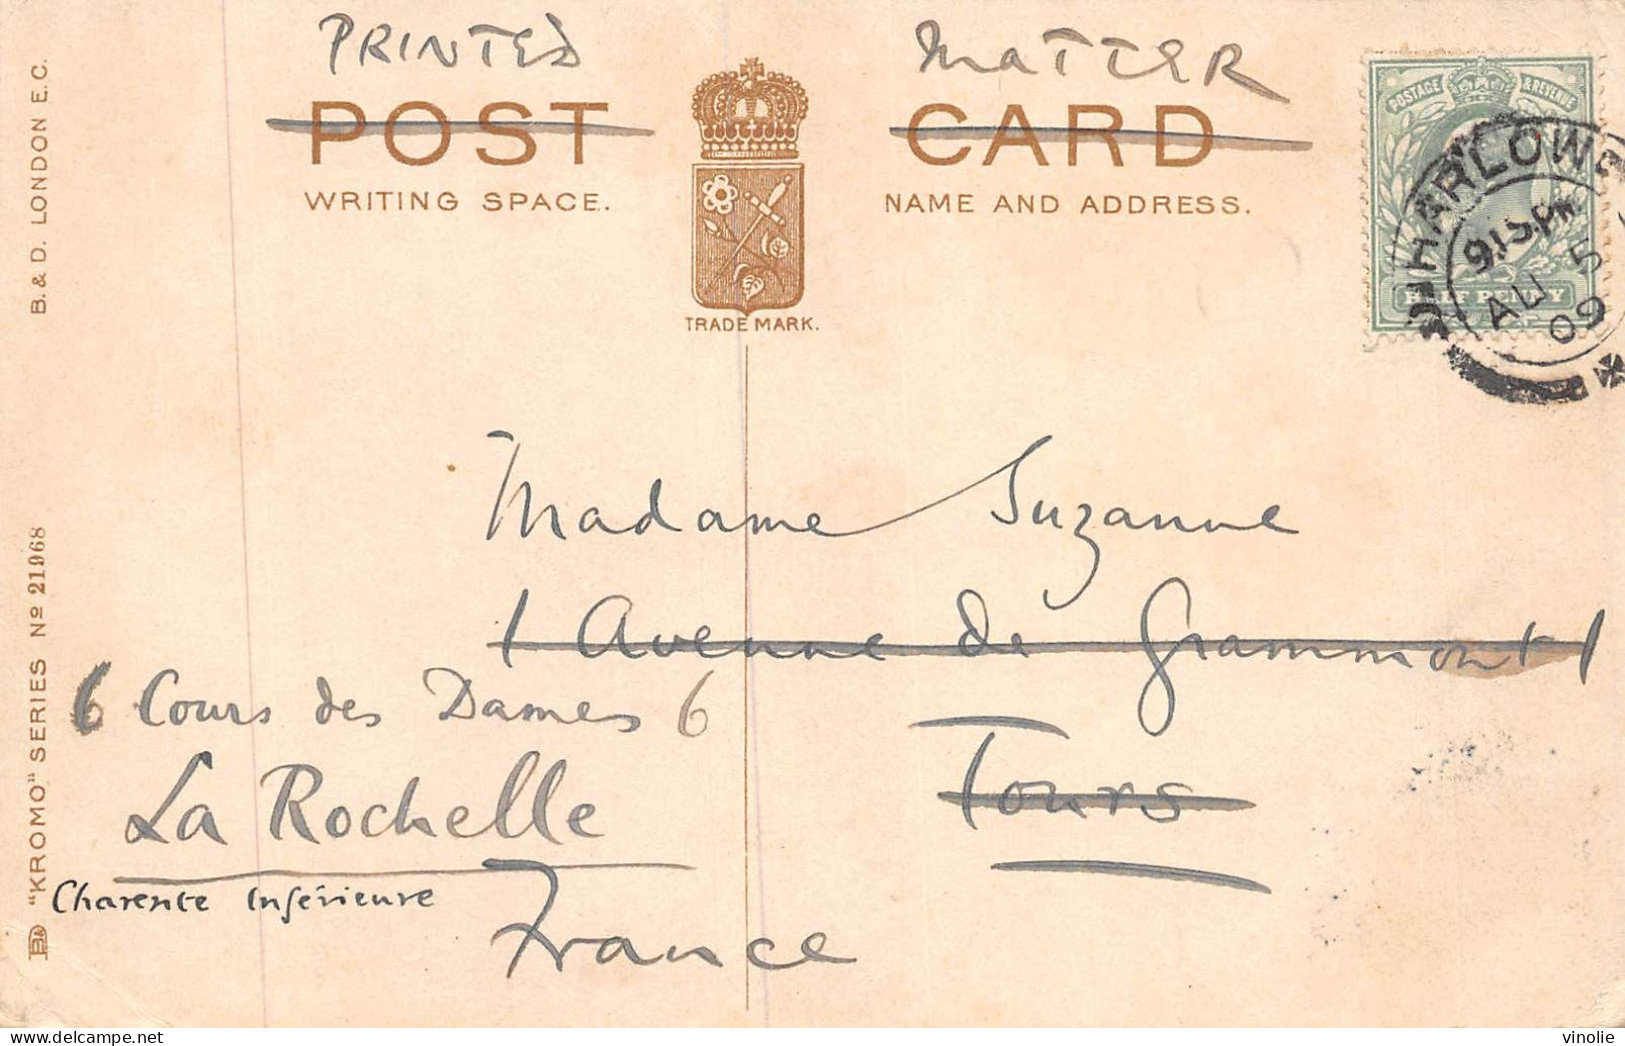 PRINTED MATTER
POST CARD
WRITING SPACE.
NAME AND ADDRESS.
TRADE MARK.
POSTAGE & REVENUE
HALF PENNY
HARLOW
9.15 PM
AU 5
09
B. & D. LONDON E.C.
"KROMO" SERIES Nº 21968
Madame Suzanne
1 Avenue de Grammont 1
Tours
6 Cours des Dames 6
La Rochelle
Charente Inférieure
France
vinolie